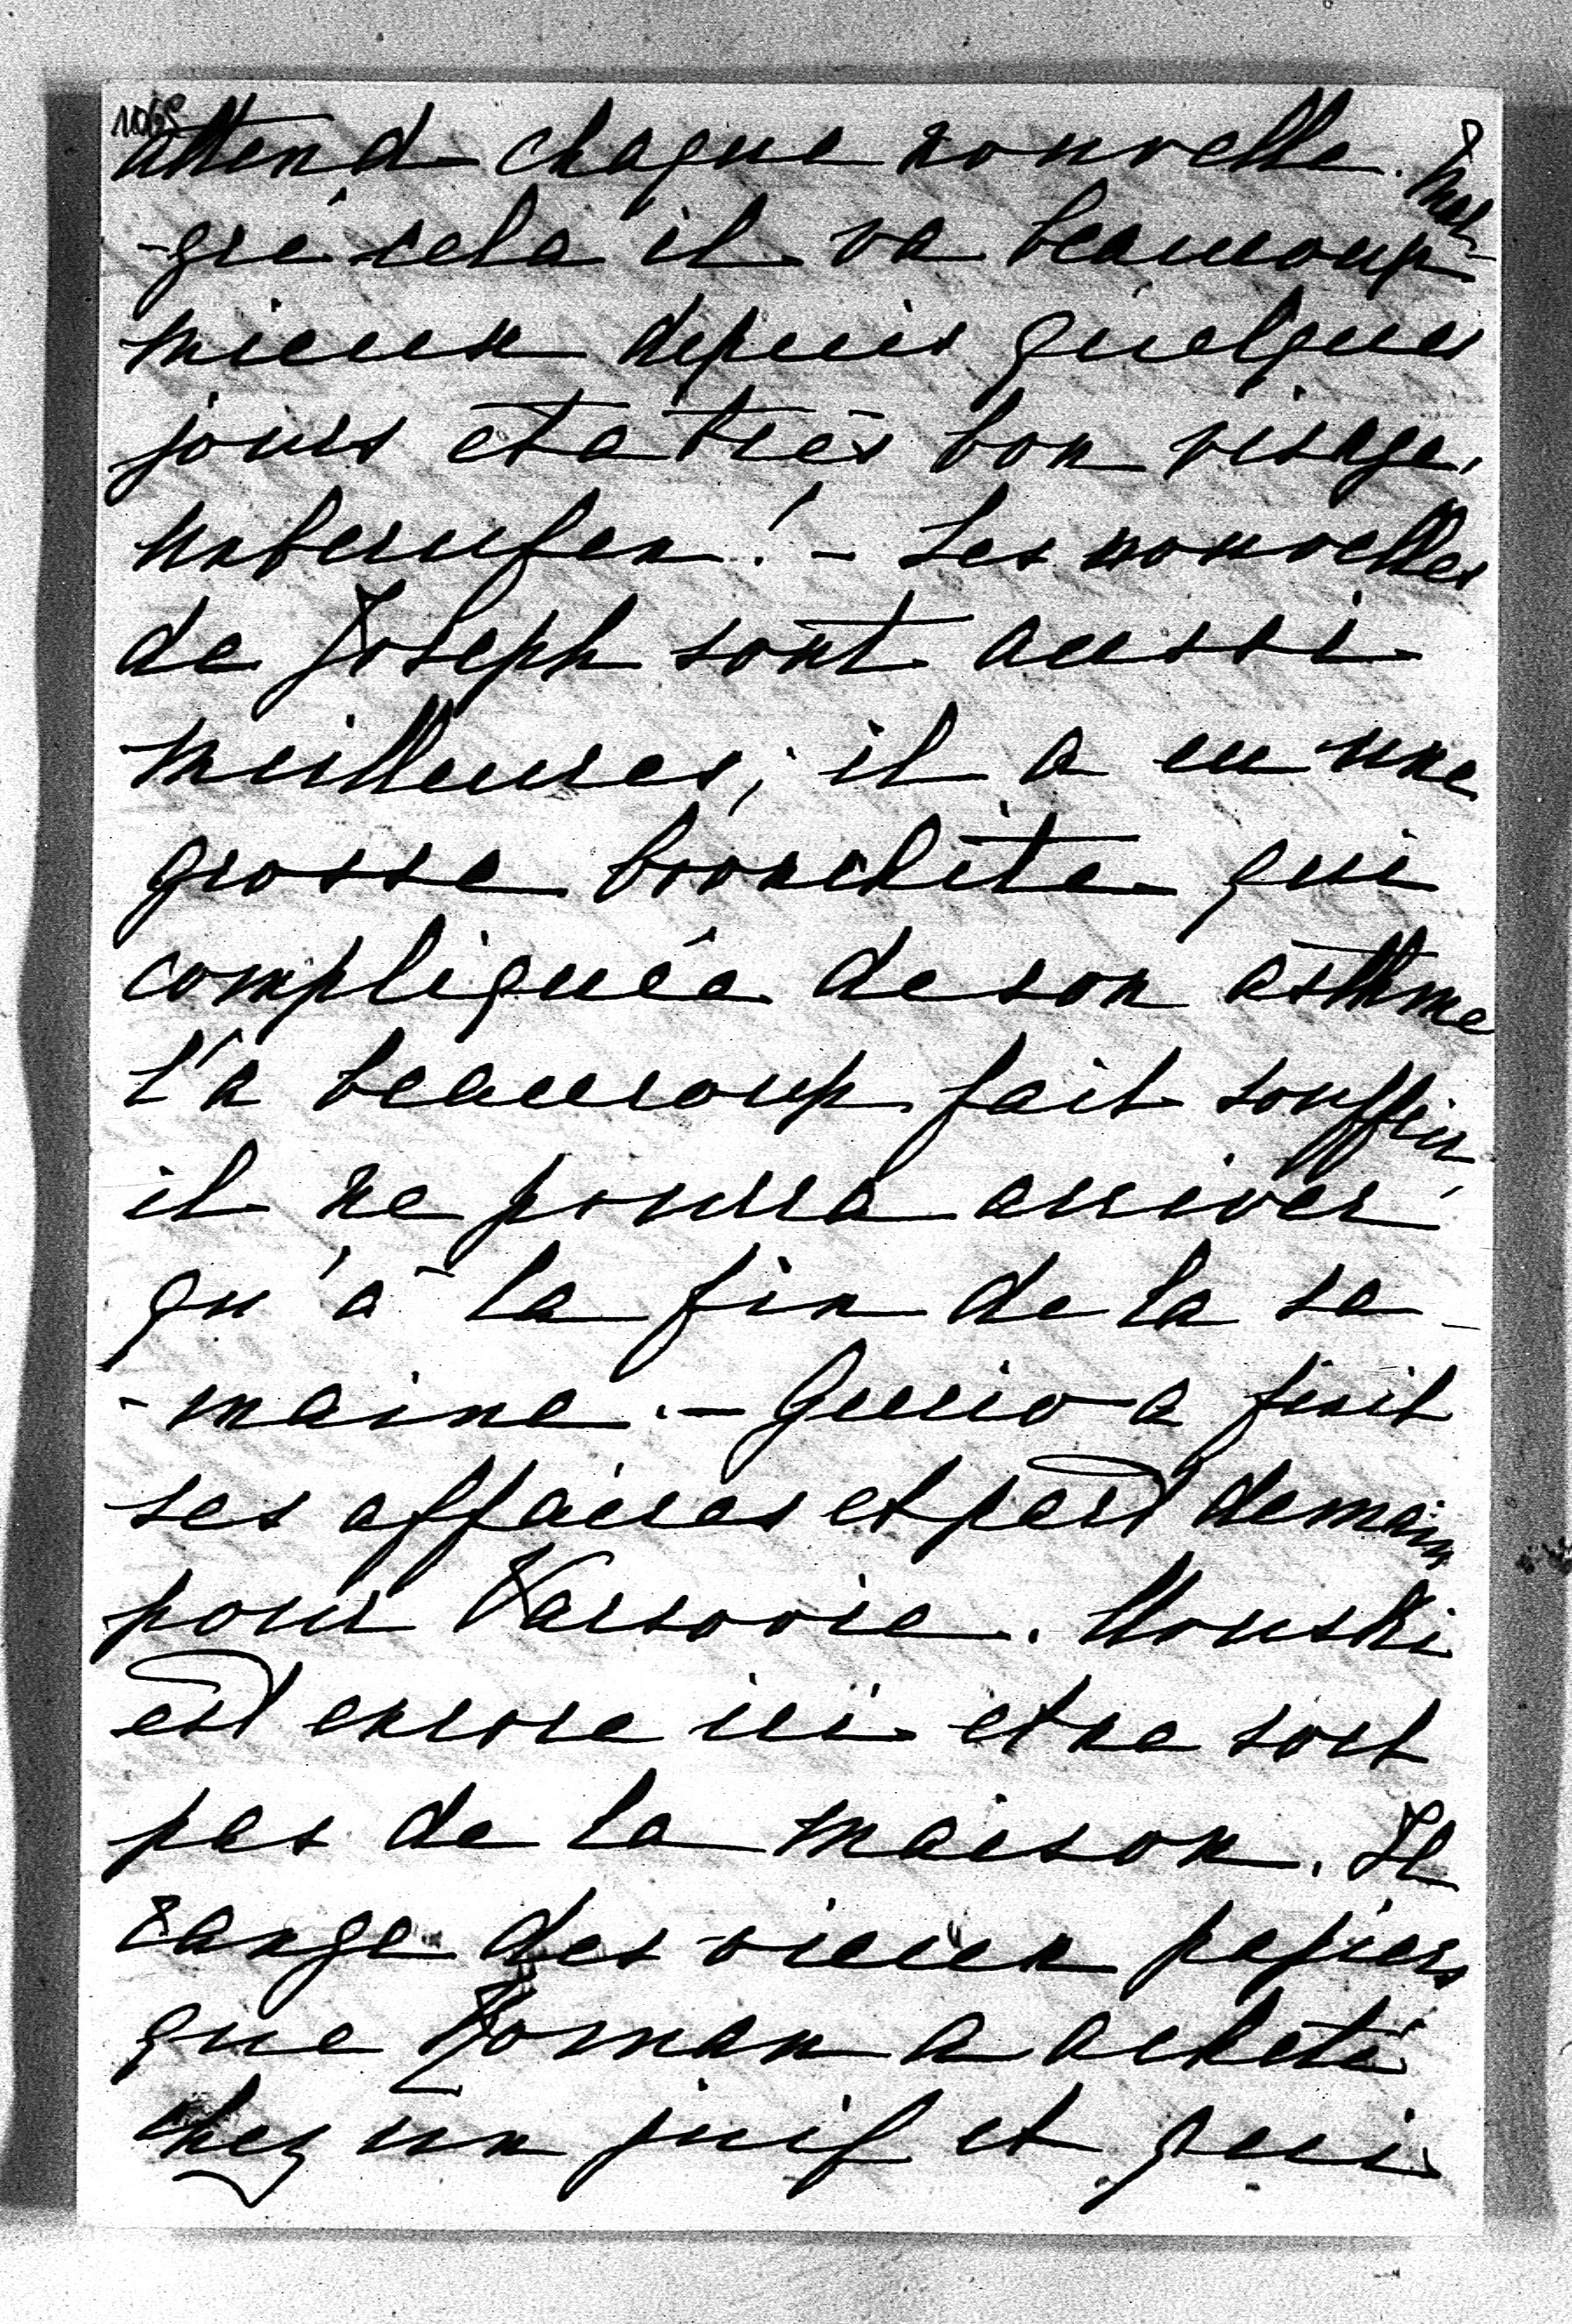 attend chaque nouvelle. Mal-
-gré cela il va beaucoup
mieux depuis quelques
jours et a très bon visage,
unberufen! - Les nouvelles
de Joseph sont aussi
meilleures; il a eu une
grosse bronchite qui
compliquée de son asthme
l'a beaucoup fait souffrir,
il ne pourra arriver
qu'à la fin de la se-
-maine. - Gucio a finit
ses affaires et part demain
pour Varsovie.
est encore ici et ne sort
pas de la maison. Il
range des vieux papiers
que Roman a acheté
chez un juif et qui